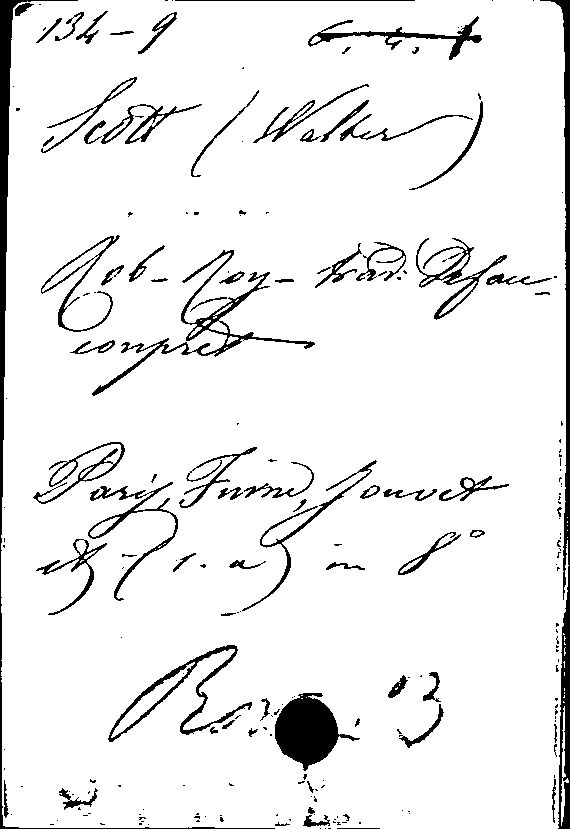 134-9 6.4.1
Scott (Walter)
Rob-Roy-trad: Defau-
conpret
Paris, Furne, Jouvet
et (s.a) in 8°